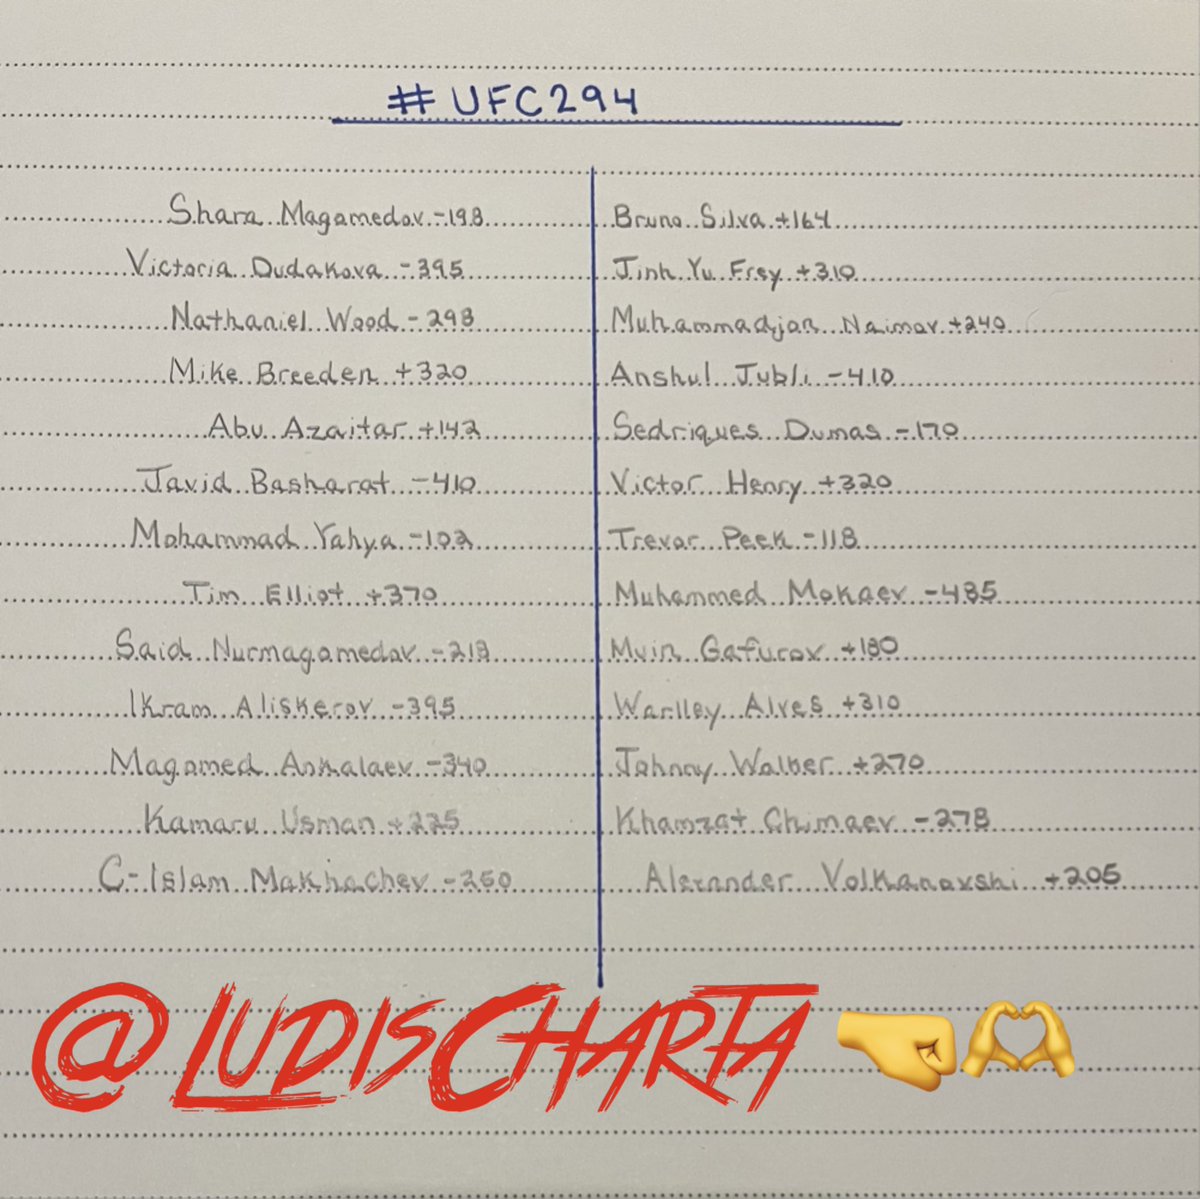 #UFC294
Shara Magamedov -198 Bruno Silva +164
Victoria Dudakova -395 Jinh Yu Frey +310
Nathaniel Wood -298 Muhammadjan Naimov +240
Mike Breeden +320 Anshul Jubli -410
Abu Azaitar +142 Sedriques Dumas -170
Javid Basharat -410 Victor Henry +320
Mohammad Yahya -102 Trevor Peek -118
Tim Elliot +370 Muhammed Mokaev -485
Said Nurmagomedov -218 Muin Gafurov +180
Ikram Aliskerov -395 Warlley Alves +310
Magomed Ankalaev -340 Johnny Walker +270
Kamaru Usman +225 Khamzat Chimaev -278
C-Islam Makhachev -250 Alexander Volkanovshi +205
@LUDISCHARTA 🤜🫶